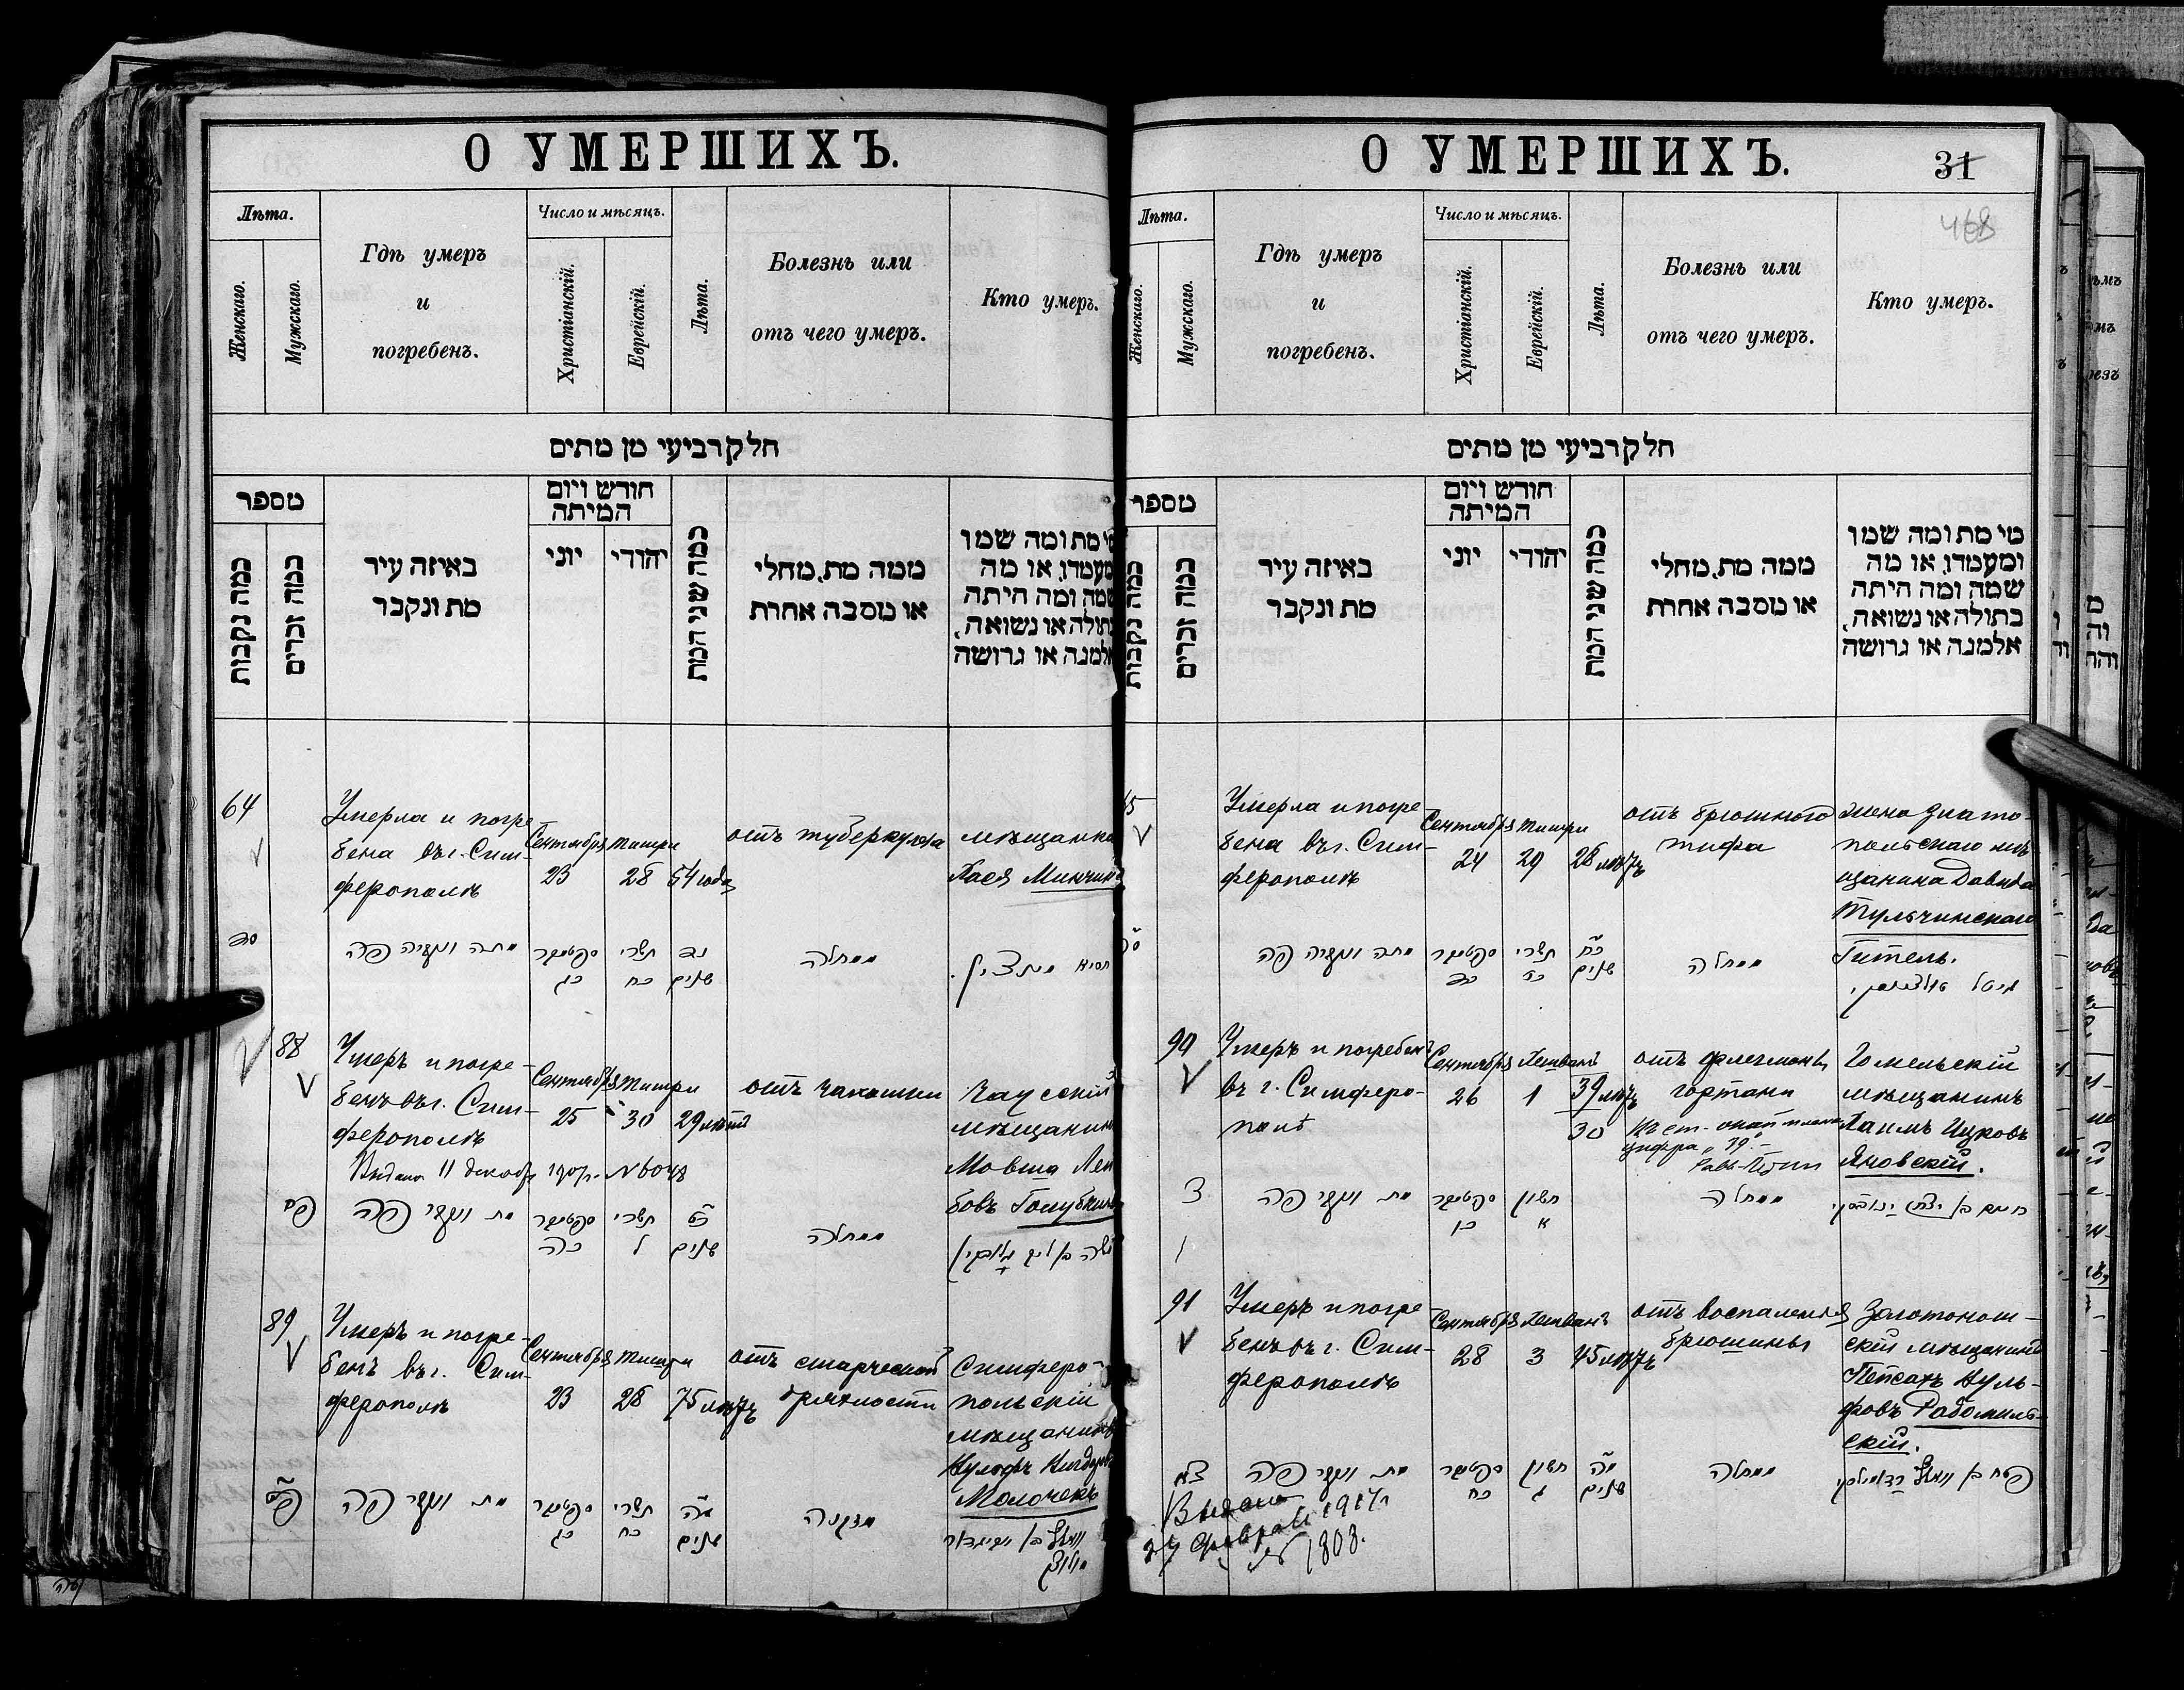 О УМЕРШИХЪ.
Лѣта.
Женскаго.
Мужскаго.
Гдѣ умеръ
и
погребенъ.
Число и мѣсяцъ.
Христіанскій.
Еврейскій.
Лѣта.
Болезнь или
отъ чего умеръ.
Кто умеръ.
חלק רביעי מן מתים
מספר
כמה נקבות
כמה זכרים
באיזה עיר
מת ונקבר
חודש ויום
המיתה
יוני
יהודי
כמה שני המת
ממה מת, מחלי
או מסבה אחרת
מי מת ומה שמו
ומעמדו, או מה
שמה ומה היתה
בתולה או נשואה,
אלמנה או גרושה
64
Умерла и погре-
бена въ г. Сим-
ферополѣ
Сентября
23
Тишри
28
54 года
отъ туберкулеза
мѣщанка
Хася
סד
מתה ונקברה פה
סקטמבר
כג
תשרי
כח
נד
שנים
ממחלה
חסיא
88
Умеръ и погре-
бенъ въ г. Сим-
ферополѣ
Сентября
25
Тишри
30
29 лѣтъ
отъ чахотки
Чаусскій
мѣщанинъ
Мовша Лей
бовъ Голубкинъ
Выдана 11 декабр
פח
מת ונקבר פה
סקטמבר
כה
תשרי
ל
כט
שנים
ממחלה
89
Умеръ и погре-
бенъ въ г. Сим-
ферополѣ
Сентября
23
Тишри
28
75 лѣтъ
отъ старческой
дряхлости
Симферо-
польскій
мѣщанинъ
Вульфъ
Молочекъ
פט
מת ונקבר פה
סקטמבר
כג
תשרי
כח
עה
שנים
מזקנה
О УМЕРШИХЪ.
31
468
Лѣта.
Женскаго.
Мужскаго.
Гдѣ умеръ
и
погребенъ.
Число и мѣсяцъ.
Христіанскій.
Еврейскій.
Лѣта.
Болезнь или
отъ чего умеръ.
Кто умеръ.
חלק רביעי מן מתים
מספר
כמה נקבות
כמה זכרים
באיזה עיר
מת ונקבר
חודש ויום
המיתה
יוני
יהודי
כמה שני המת
ממה מת, מחלי
או מסבה אחרת
מי מת ומה שמו
ומעמדו, או מה
שמה ומה היתה
בתולה או נשואה,
אלמנה או גרושה
Умерла и погре-
бена въ г. Сим-
ферополѣ
Сентября
24
Тишри
29
28 лѣтъ
отъ брюшного
тифа
жена Златo-
польскаго мѣ-
щанина Давида
Тульчинскаго
Гитель.
מתה ונקברה פה
סקטמבר
כד
תשרי
כט
כח
שנים
ממחלה
גיטל טולצינסקי
90
Умеръ и погребенъ
въ г. Симферо-
полѣ
Сентября
26
Хешванъ
1
39 лѣтъ
30
отъ флегмоны
гортани
Гомельскій
мѣщанинъ
Хаимъ Ицковъ
Яновскій.
צ
מת ונקבר פה
סקטמבר
כו
חשון
א
ממחלה
חיים בן יצחק ינובסקי
91
Умеръ и погре-
бенъ въ г. Сим-
ферополѣ
Сентября
28
Хешванъ
3
45 лѣтъ
отъ воспаленія
брюшины
Золотонош-
скій мѣщанинъ
Пейсахъ Вуль-
фовъ Радомиль-
скій.
צא
מת ונקבר פה
סקטמבר
כח
חשון
ג
מה
שנים
ממחלה
Выдана
27 февраля 1917г
№ 1808.